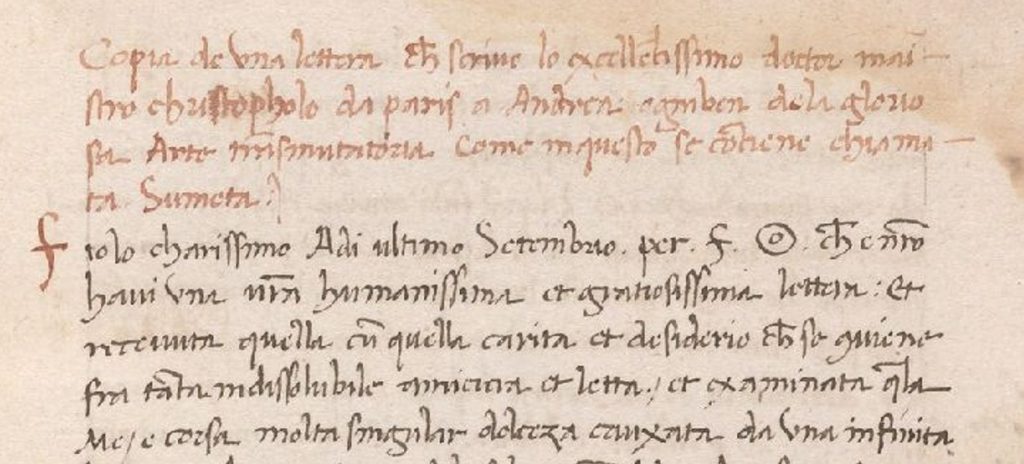 Copia de vna lettera ch̄ scriue lo excellētissimo doctor mai
stro christopholo da paris a Andrea ogniben dela glorio
sa Arte trāsmutatoria Come in questo se cōtiene chiama
ta Sumeta
f iolo charissimo Adi ultimo Setembrio. per. f. ☉. ch̄ e nr̄o
haui vna vr̄a humanissima et gratiosissima lettera: Et
receuuta quella cū quella carita et desiderio ch̄ se 9uiene
fra tāta indissolubile amicicia et letta / et examinata q̄la
Me / e corsa molta singular dolceza cauxata da vna infinita